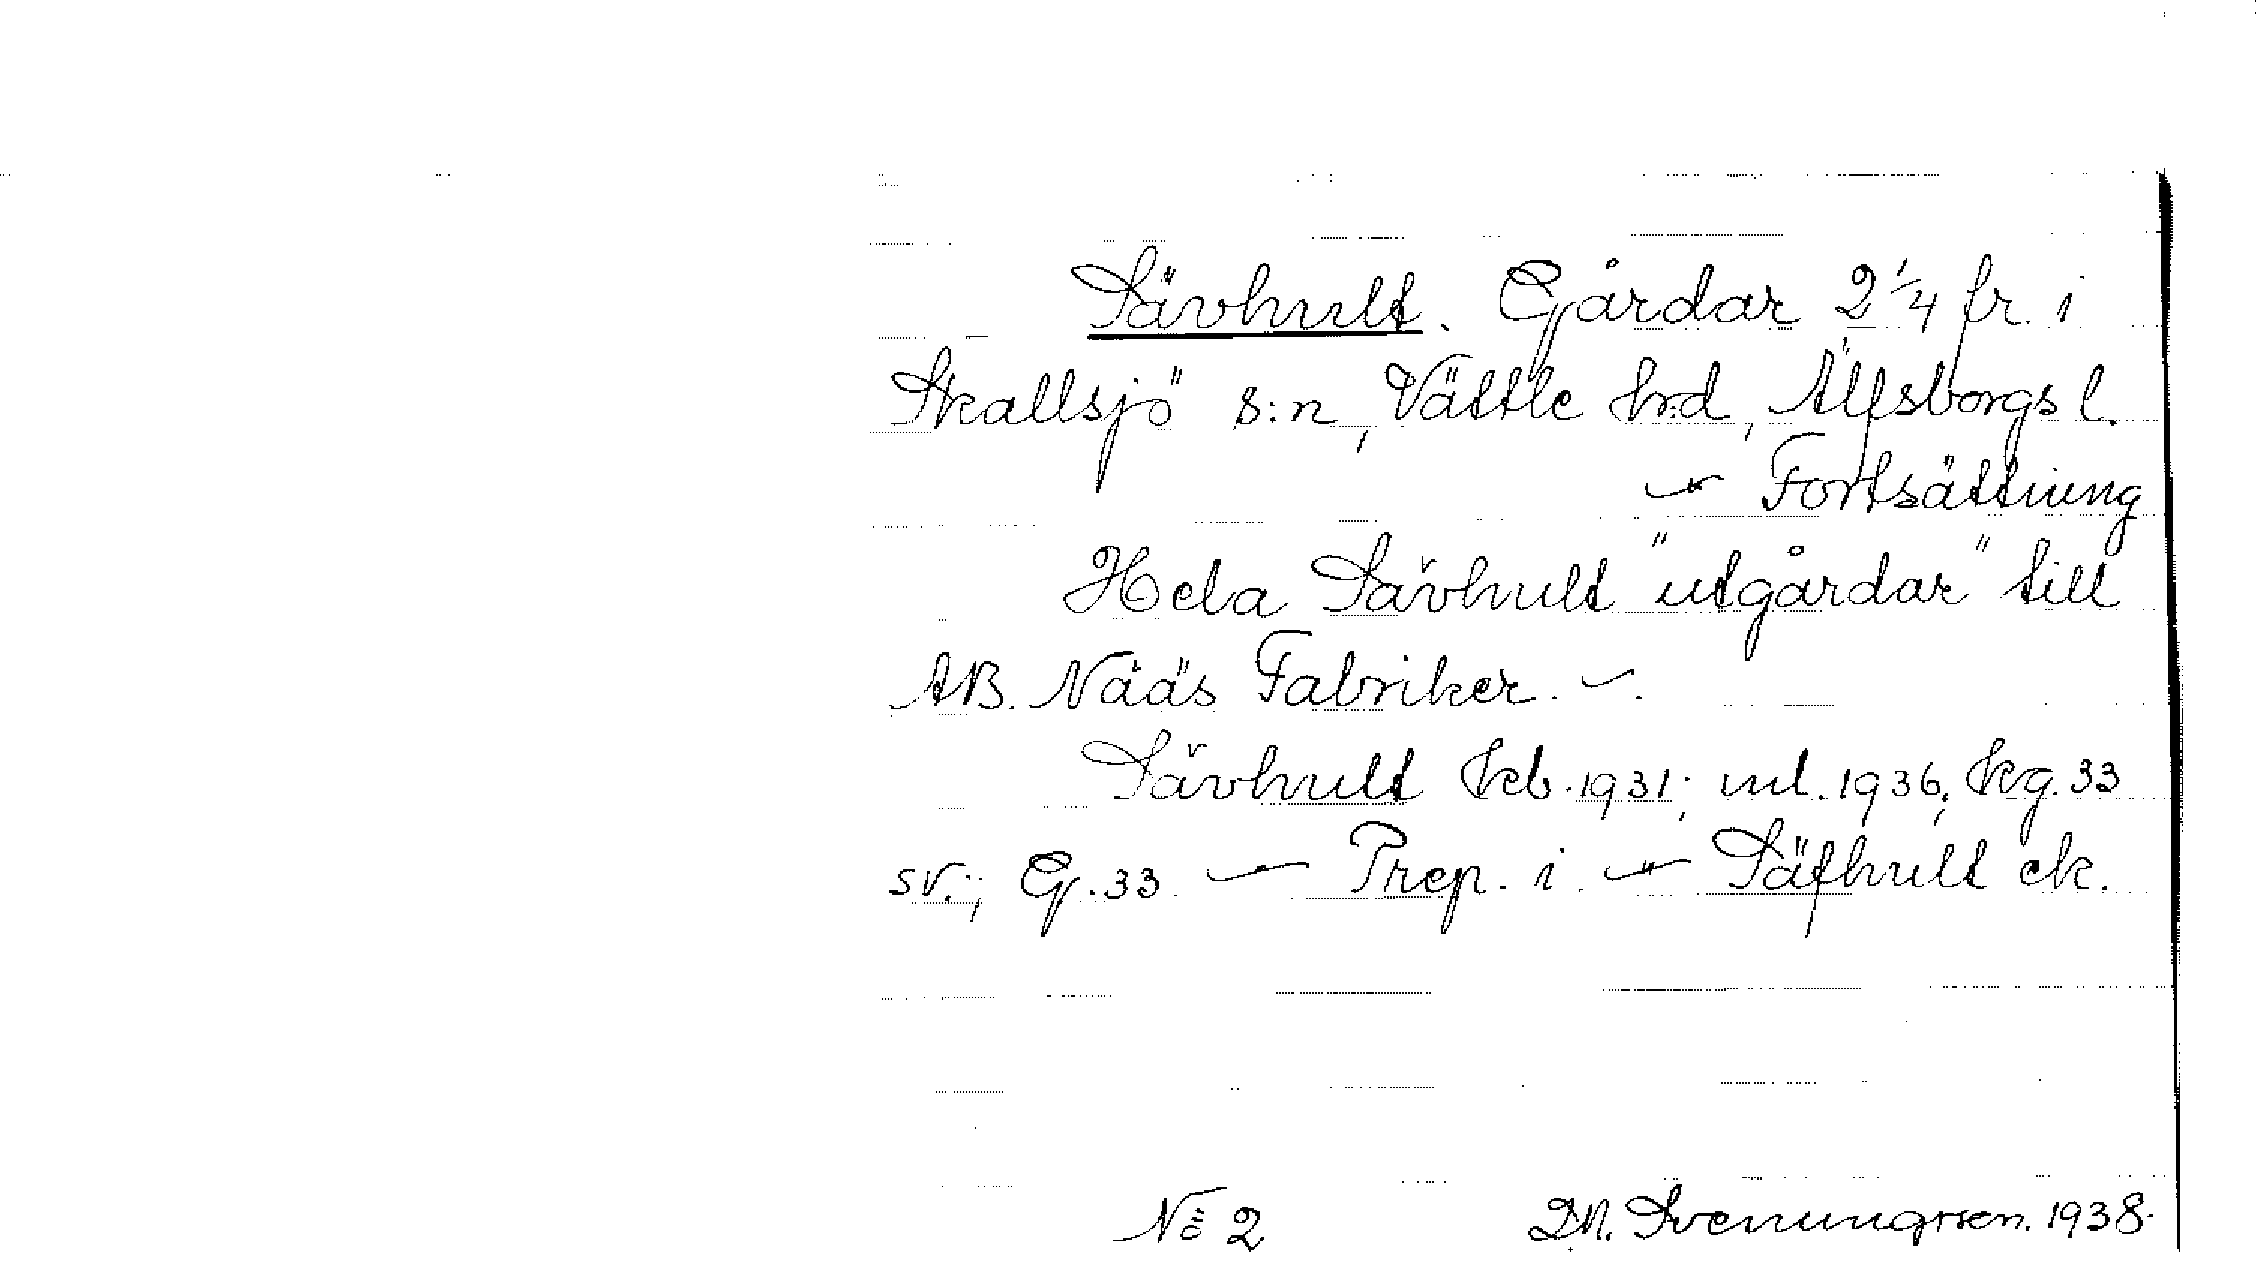 Sävhult. Gårdar 2 1/4 fr. i
Skallsjö s:n, Vättle hrd, Älfsborgs l.
— Fortsättning
Hela Sävhult "utgårdar" till
AB. Nääs Fabriker. —.
Sävhult keb. 1931; ml. 1936; krg. 33
sv.; G. 33 — Prep. i. — Säfhult ek.
No 2 D.N. Svenungsson. 1938.